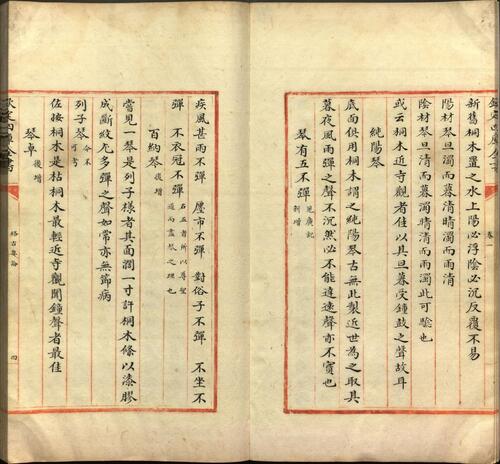 欽定四庫全書
卷一
新舊桐木置之水上陽必浮陰必沉反覆不易
陽材琴旦濁而暮清晴濁而雨清
陰材琴旦清而暮濁晴清而雨濁此可驗也
或云桐木近寺觀者佳以其旦暮受鐘鼓之聲故耳
純陽琴
底面俱用桐木謂之純陽琴古無此製近世為之取其
暮夜風雨彈之聲不沉然必不能達遠聲亦不實也
琴有五不彈
疾風甚雨不彈 廛市不彈 對俗子不彈 不坐不
彈 不衣冠不彈 右五者所以尊聖道而盡琴之理也
百納琴 後增
嘗見一琴是列子樣者其面濶一寸許桐木條以漆膠
成斷紋尤多彈之聲如常亦無節病
列子琴
琴卓 後增
佐按桐木是枯桐木最輕近寺觀聞鐘聲者最佳
欽定四庫全書
格古要論
四